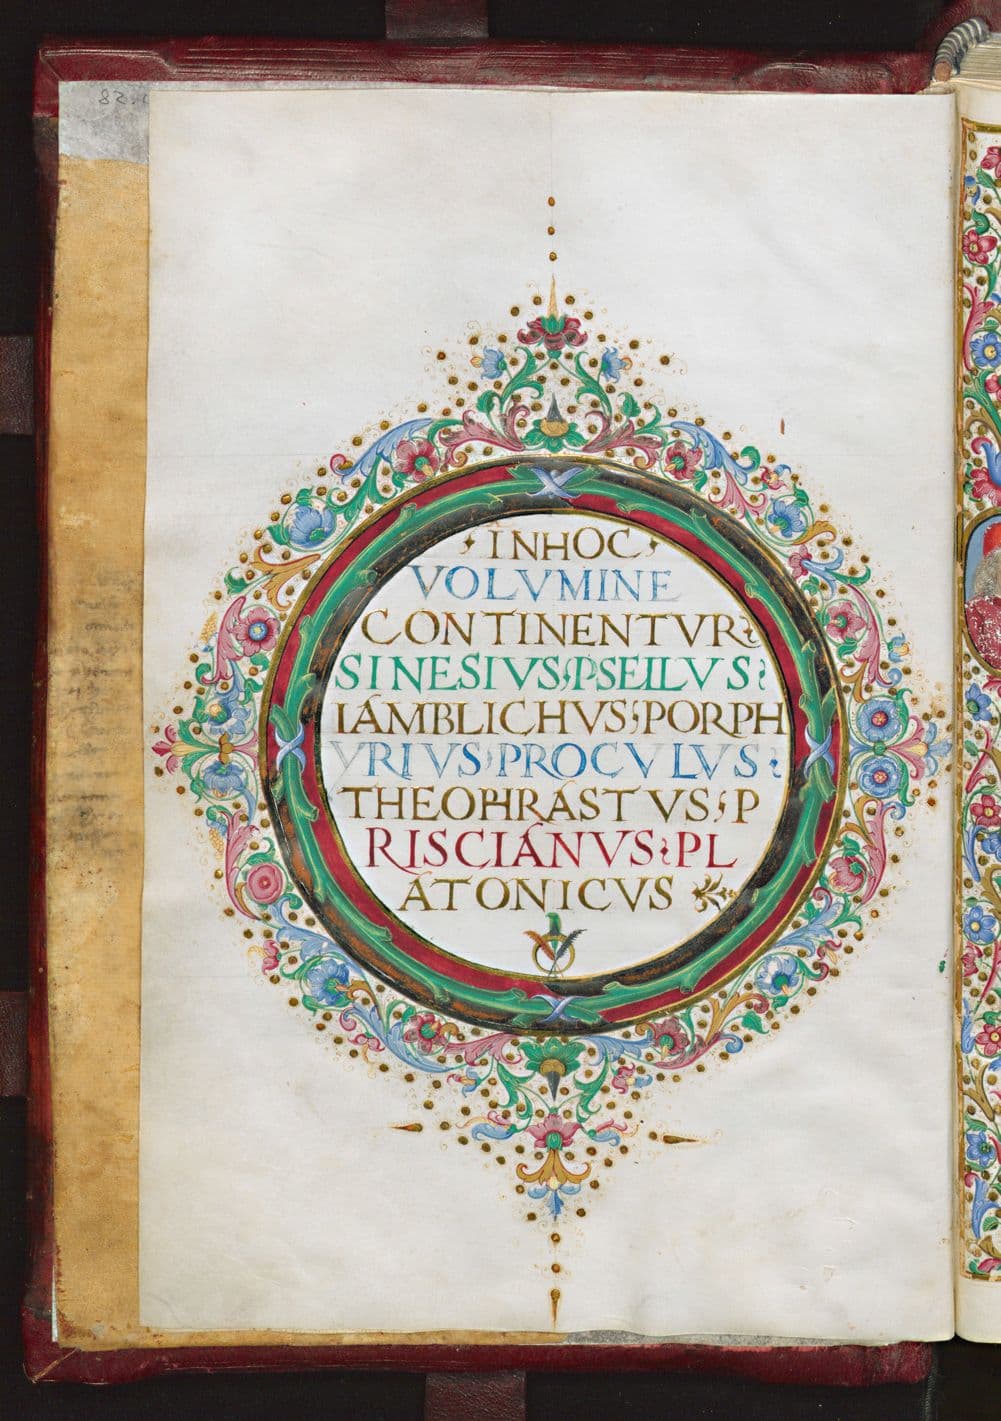 82.
IN HOC
VOLVMINE
CONTINENTVR
SINESIVS PSELLVS
IAMBLICHVS PORPH
YRIVS PROCVLVS
THEOPHRASTVS P
RISCIANVS PL
ATONICVS